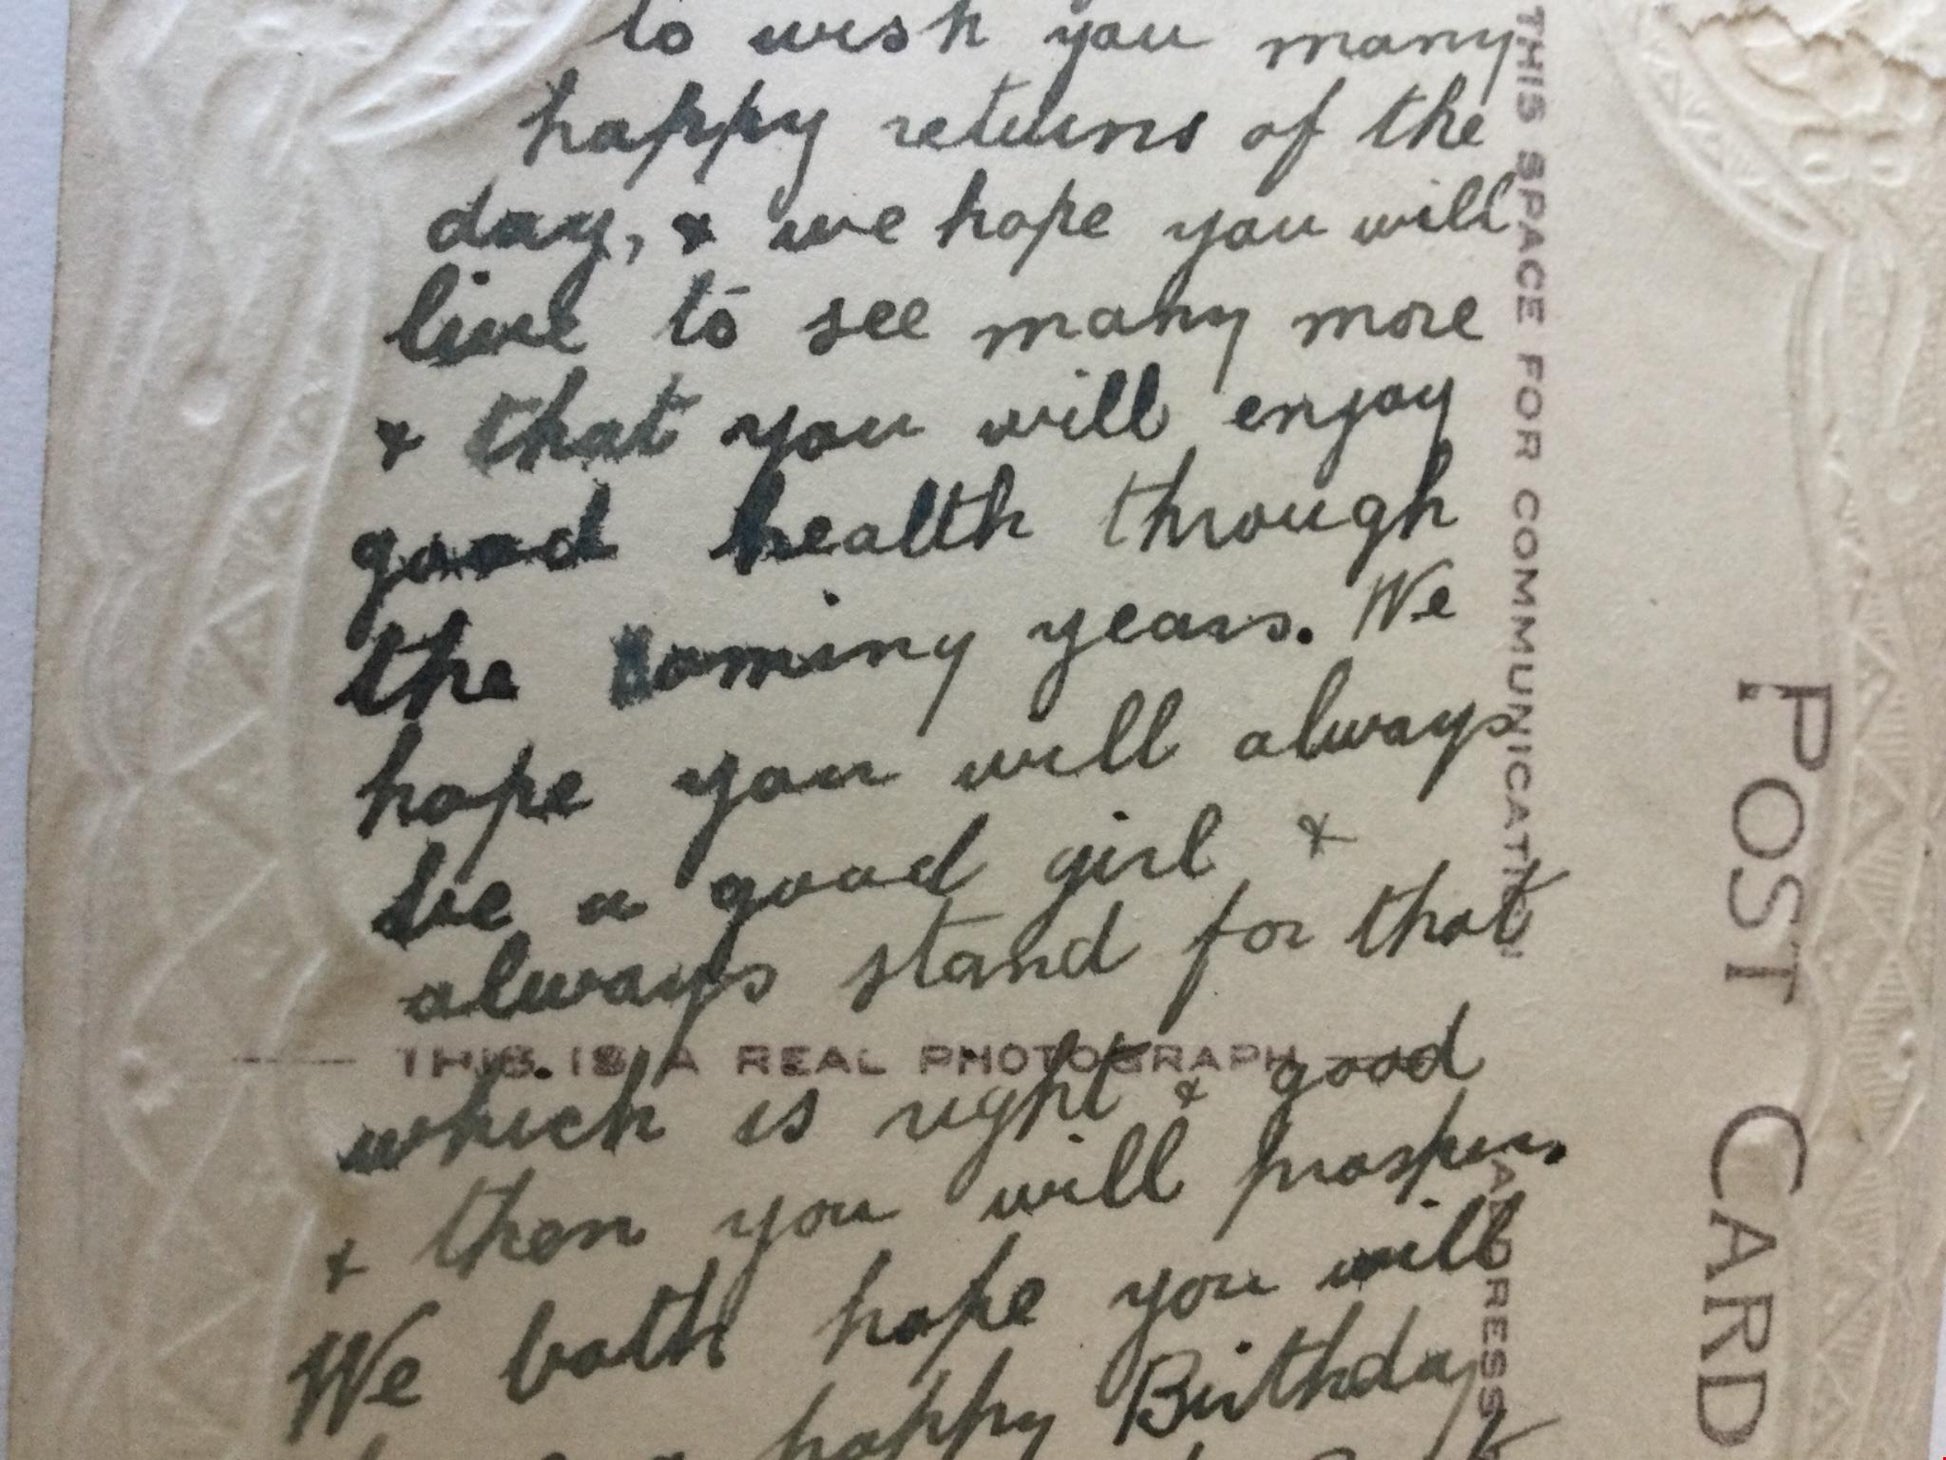 to wish you many
happy returns of the
day, & we hope you will
live to see many more
& that you will enjoy
good health through
the coming years. We
hope you will always
be a good girl &
always stand for that
which is right & good
& then you will prosper.
We both hope you will
a happy Birthday
THIS IS A REAL PHOTOGRAPH
THIS SPACE FOR COMMUNICATION
ADDRESS
POST CARD